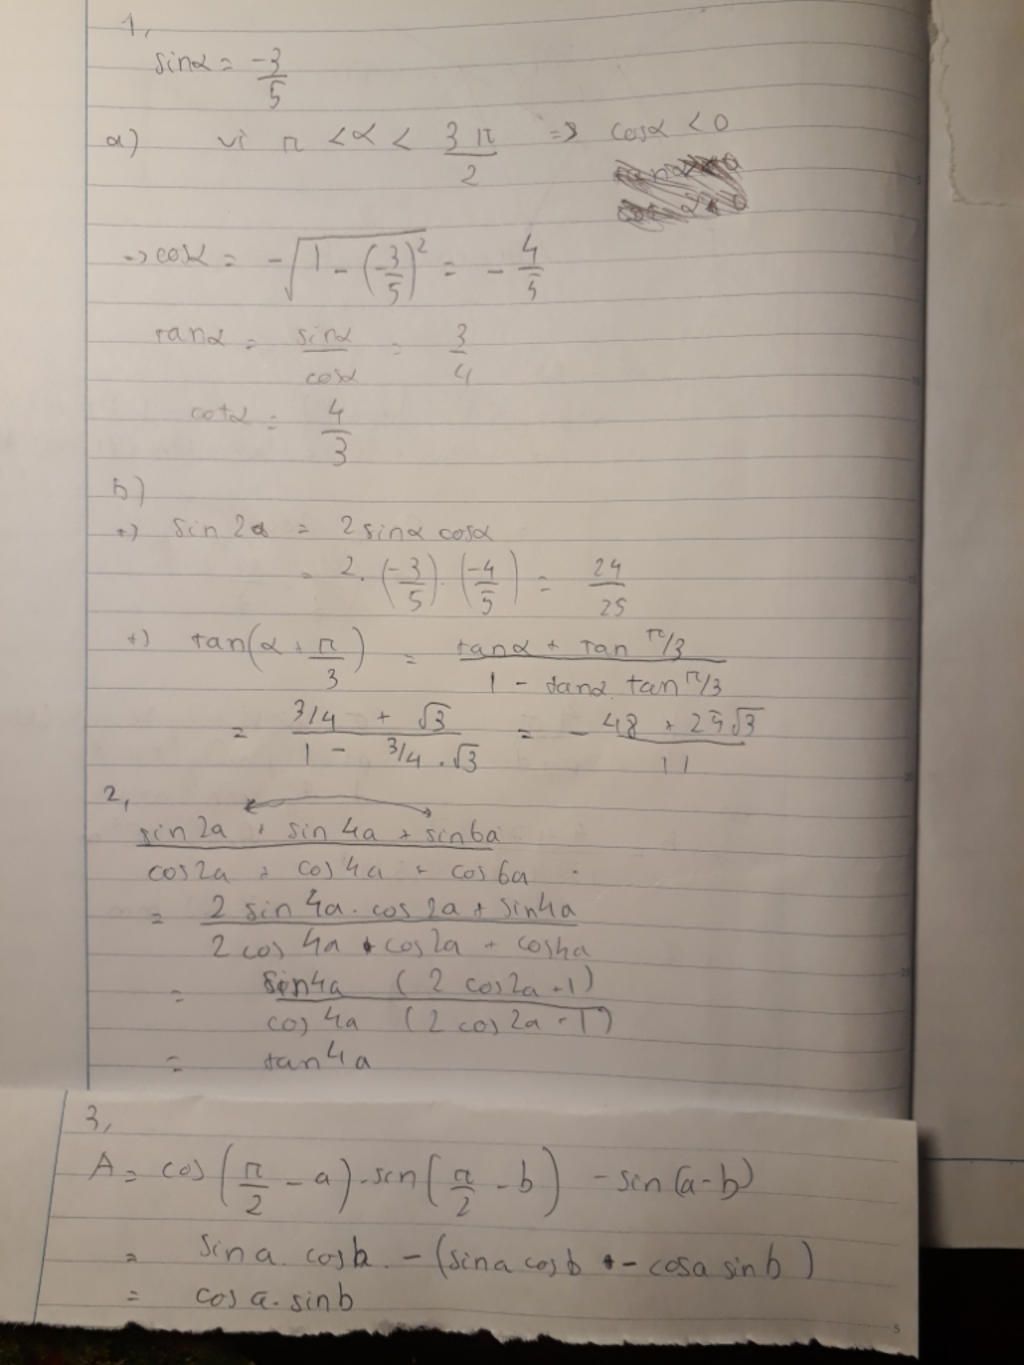 1,
sinα = -3/5
a) vì π < α < 3π/2 => cosα < 0
=> cosα = -√(1 - (-3/5)²) = - 4/5
tanα = sinα/cosα = 3/4
cotα = 4/3
b)
+) sin 2α = 2 sinα cosα
= 2. (-3/5) . (-4/5) = 24/25
+) tan(α + π/3) = (tanα + tan π/3)/(1 - tanα. tan π/3)
= (3/4 + √3)/(1 - 3/4 . √3) = - (48 + 25√3)/11
2,
(sin 2a + sin 4a + sin 6a)/(cos 2a + cos 4a + cos 6a)
= (2 sin 4a . cos 2a + sin 4a)/(2 cos 4a . cos 2a + cos 4a)
= (sin 4a (2 cos 2a + 1))/(cos 4a (2 cos 2a + 1))
= tan 4a
3,
A = cos(π/2 - a) . sin(π/2 - b) - sin(a - b)
= sin a . cos b - (sin a cos b - cos a sin b)
= cos a . sin b